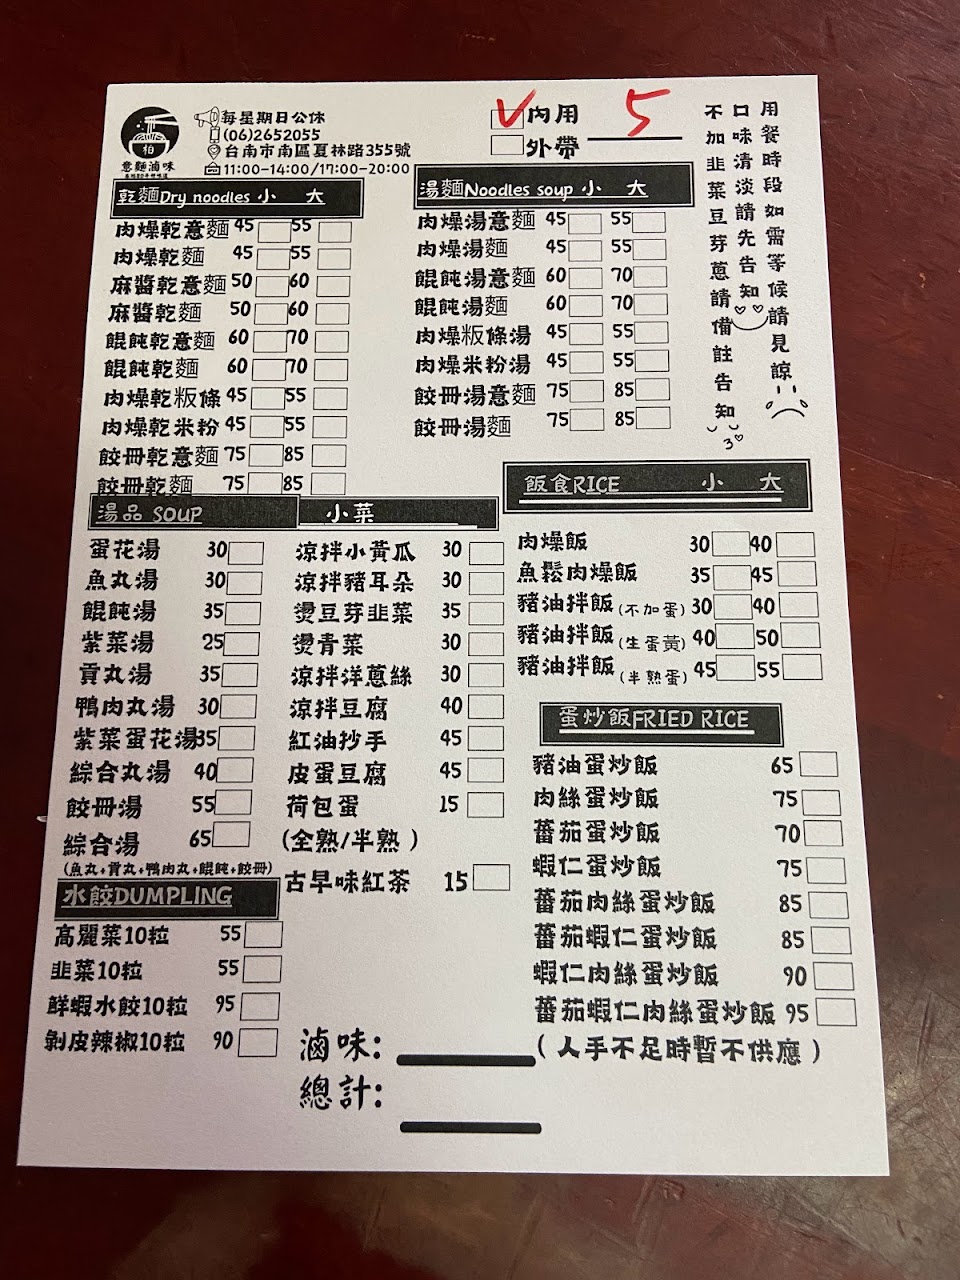 柏
意麵滷味
每星期日公休
(06)2652055
台南市南區夏林路355號
11:00-14:00/17:00-20:00
內用 5
外帶
用餐時段如需等候請見諒
口味清淡請先告知
不加韭菜豆芽蔥請備註告知
乾麵Dry noodles 小 大
肉燥乾意麵 45 55
肉燥乾麵 45 55
麻醬乾意麵 50 60
麻醬乾麵 50 60
餛飩乾意麵 60 70
餛飩乾麵 60 70
肉燥乾粄條 45 55
肉燥乾米粉 45 55
餃冊乾意麵 75 85
餃冊乾麵 75 85
湯麵Noodles soup 小 大
肉燥湯意麵 45 55
肉燥湯麵 45 55
餛飩湯意麵 60 70
餛飩湯麵 60 70
肉燥粄條湯 45 55
肉燥米粉湯 45 55
餃冊湯意麵 75 85
餃冊湯麵 75 85
湯品 SOUP
蛋花湯 30
魚丸湯 30
餛飩湯 35
紫菜湯 25
貢丸湯 35
鴨肉丸湯 30
紫菜蛋花湯35
綜合丸湯 40
餃冊湯 55
綜合湯 65
(魚丸+貢丸+鴨肉丸+餛飩+餃冊)
小菜
涼拌小黃瓜 30
涼拌豬耳朵 30
燙豆芽韭菜 35
燙青菜 30
涼拌洋蔥絲 30
涼拌豆腐 40
紅油抄手 45
皮蛋豆腐 45
荷包蛋 15
(全熟/半熟 )
古早味紅茶 15
飯食RICE 小 大
肉燥飯 30 40
魚鬆肉燥飯 35 45
豬油拌飯(不加蛋) 30 40
豬油拌飯(生蛋黃) 40 50
豬油拌飯(半熟蛋) 45 55
蛋炒飯FRIED RICE
豬油蛋炒飯 65
肉絲蛋炒飯 75
蕃茄蛋炒飯 70
蝦仁蛋炒飯 75
蕃茄肉絲蛋炒飯 85
蕃茄蝦仁蛋炒飯 85
蝦仁肉絲蛋炒飯 90
蕃茄蝦仁肉絲蛋炒飯 95
( 人手不足時暫不供應 )
水餃DUMPLING
高麗菜10粒 55
韭菜10粒 55
鮮蝦水餃10粒 95
剝皮辣椒10粒 90
滷味:
總計: